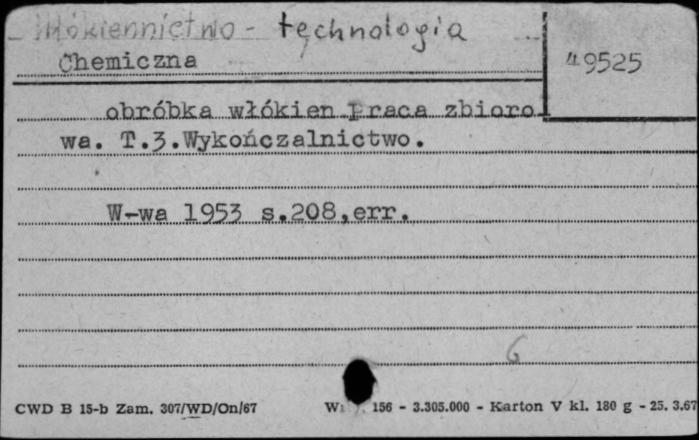 Włókiennictwo - technologia
Chemiczna
49525
obróbka włókien.Praca zbioro
wa. T.3.Wykończalnictwo.
W-wa 1953 s.208,err.
6
CWD B 15-b Zam. 307/WD/On/67 156 - 3.305.000 - Karton V kl. 180 g - 25. 3.67